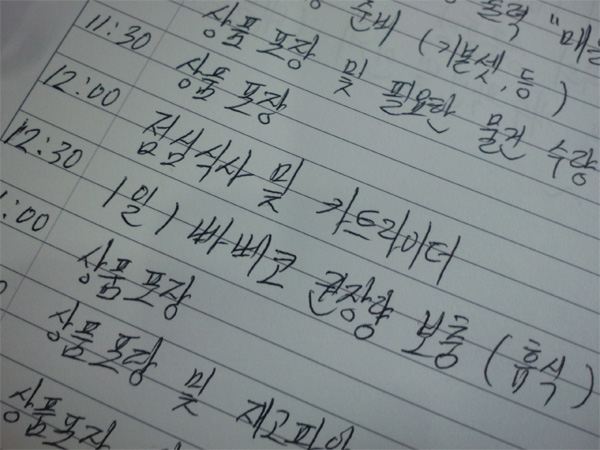 출력 "매출
준비 (기본셋, 등)
11:30 상품 포장 및 필요한 물건 수량
12:00 상품 포장
12:30 점심식사 및 카트라이더
1:00 1일 1 바베코 권장량 보충 (휴식)
상품포장
상품포장 및 재고파악
상품포장